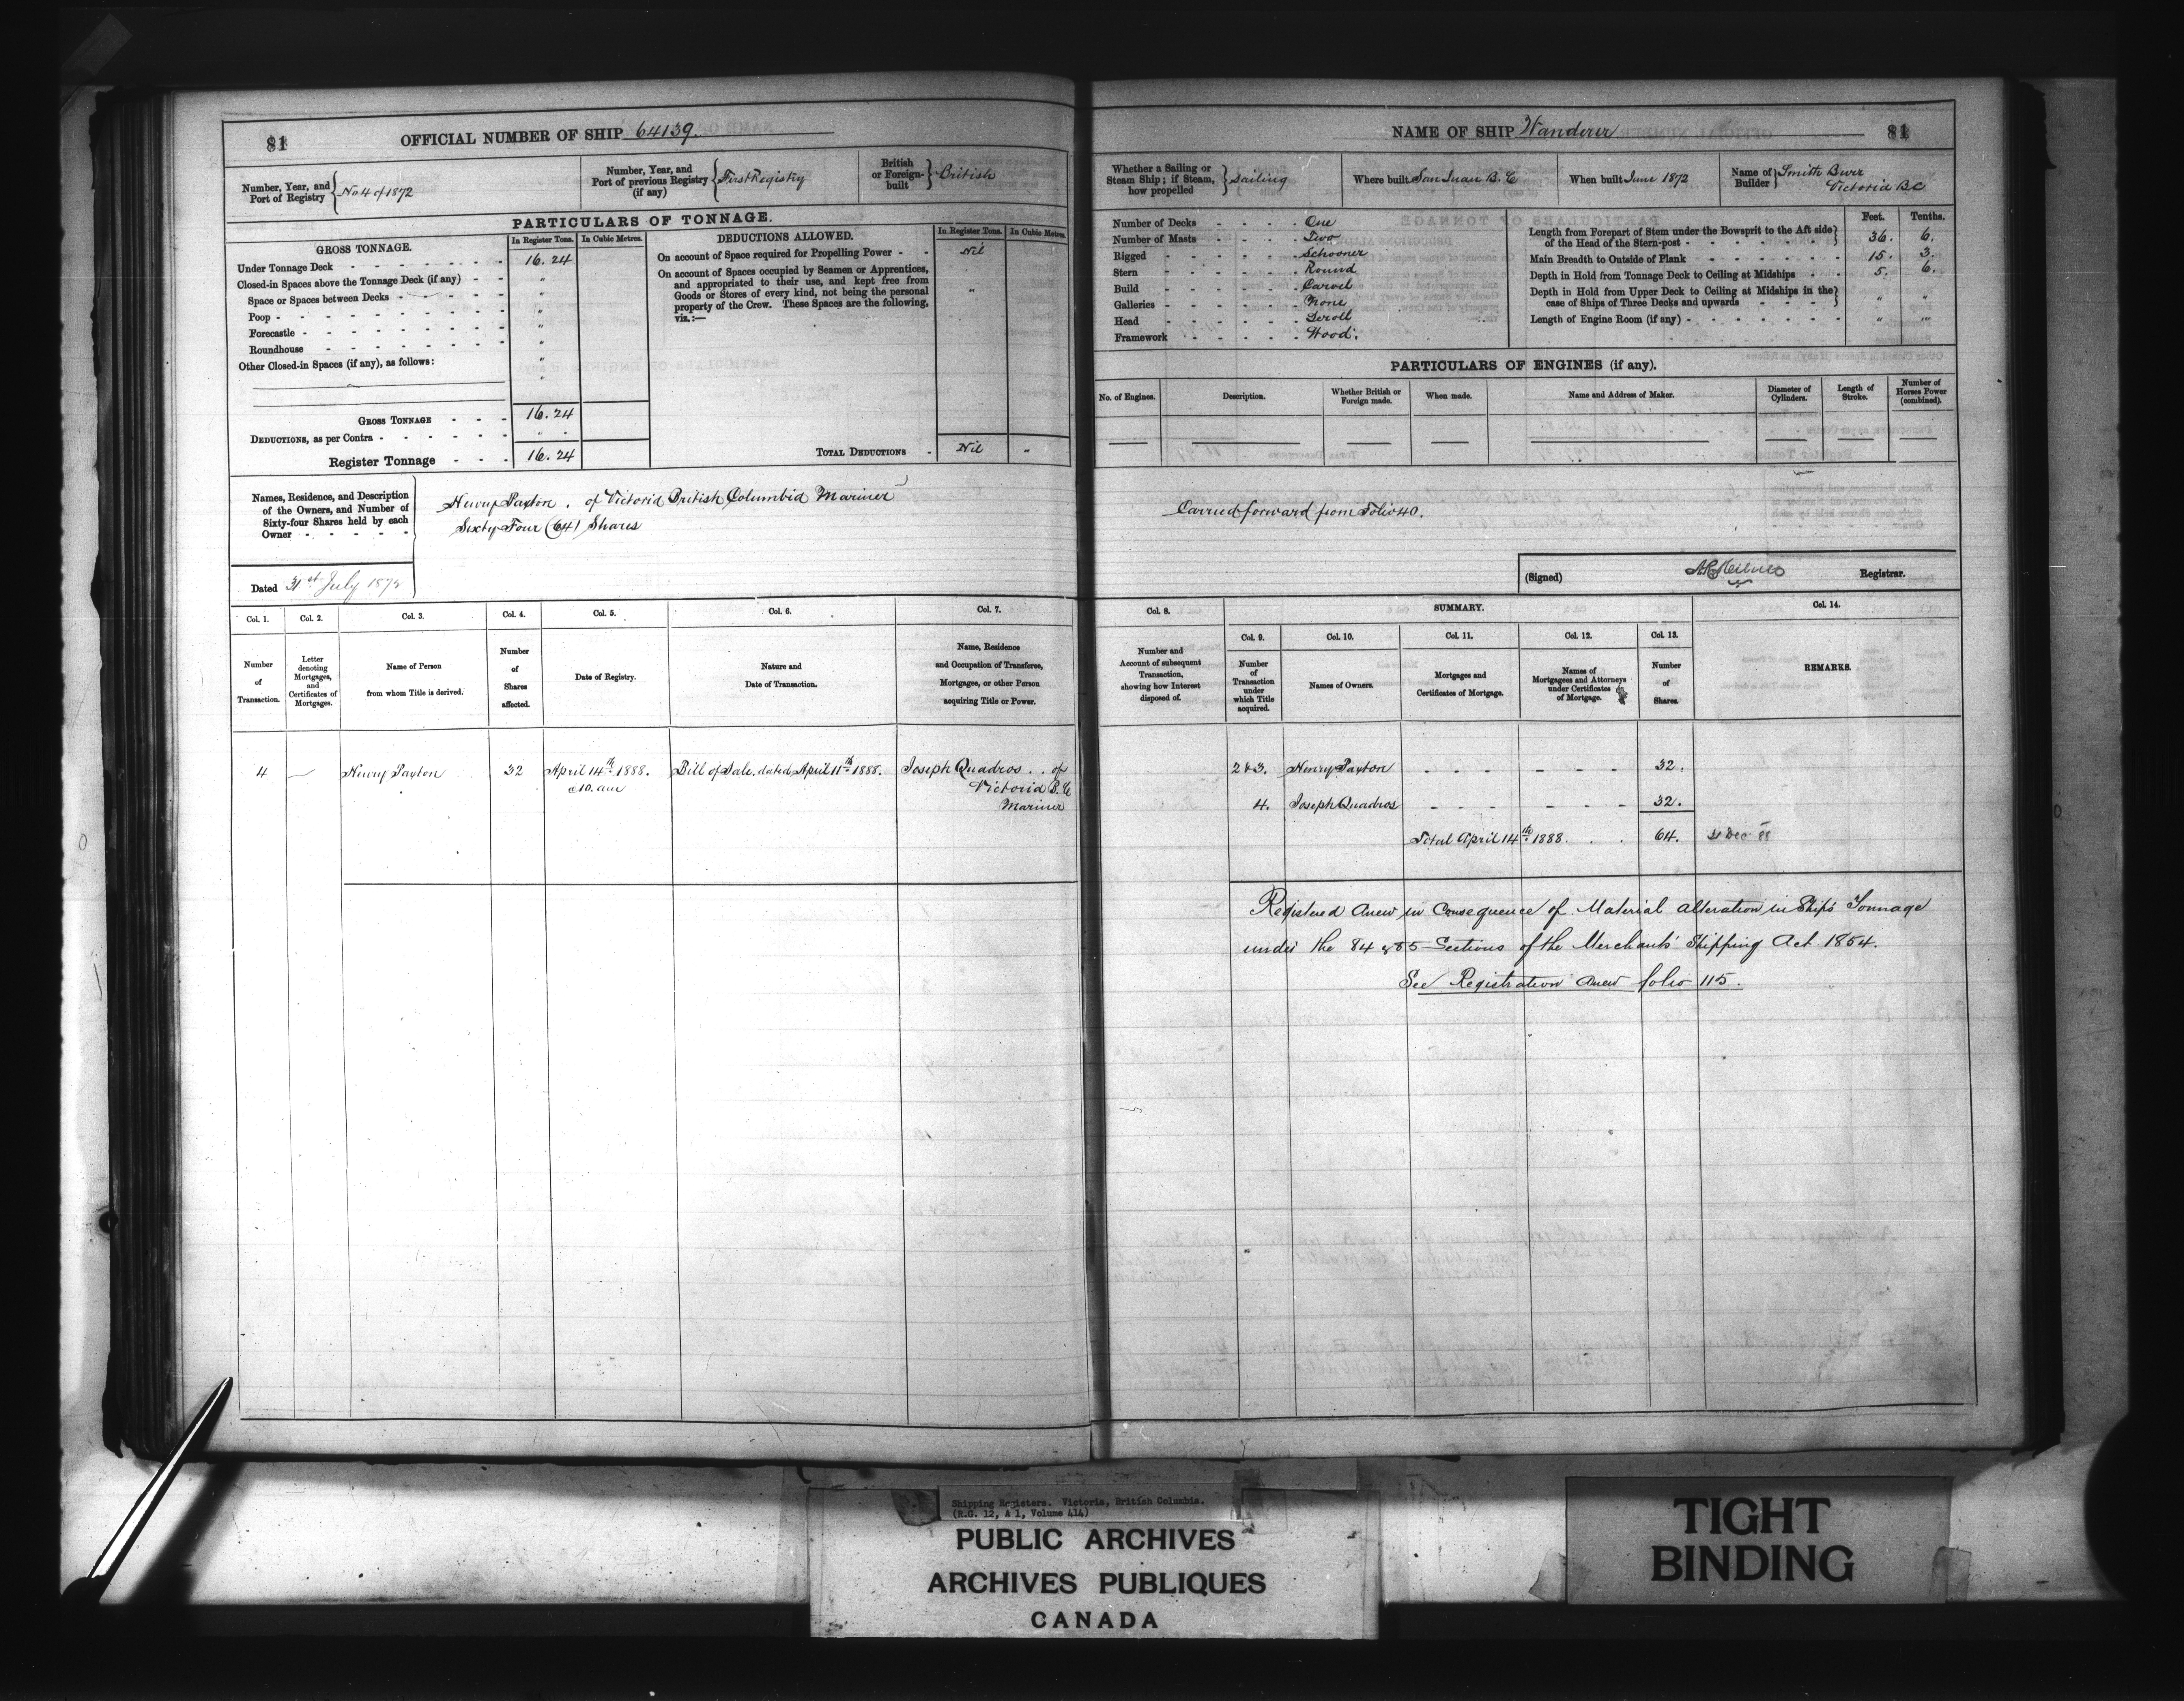 81
OFFICIAL NUMBER OF SHIP 64139.
Number, Year, and Port of Registry { No 4 of 1872
Number, Year, and Port of previous Registry (if any) { First Registry
British or Foreign-built } British
PARTICULARS OF TONNAGE.
GROSS TONNAGE. In Register Tons. In Cubic Metres.
Under Tonnage Deck - - - 16.24
Closed-in Spaces above the Tonnage Deck (if any) - - "
Space or Spaces between Decks - - - "
Poop - - - "
Forecastle - - - "
Roundhouse - - - "
Other Closed-in Spaces (if any), as follows: "
"
GROSS TONNAGE - - - 16.24
DEDUCTIONS, as per Contra - - - " -
Register Tonnage - - - 16.24
DEDUCTIONS ALLOWED. In Register Tons. In Cubic Metres.
On account of Space required for Propelling Power - - Nil
On account of Spaces occupied by Seamen or Apprentices,
and appropriated to their use, and kept free from
Goods or Stores of every kind, not being the personal "
property of the Crew. These Spaces are the following,
viz.:—
TOTAL DEDUCTIONS - Nil "
Names, Residence, and Description
of the Owners, and Number of
Sixty-four Shares held by each
Owner - - - - -
Henry Paxton . of Victoria British Columbia Mariner
Sixty Four (64) Shares
Dated 31st July 1872
Col. 1. Number of Transaction.
Col. 2. Letter denoting Mortgages, and Certificates of Mortgages.
Col. 3. Name of Person from whom Title is derived.
Col. 4. Number of Shares affected.
Col. 5. Date of Registry.
Col. 6. Nature and Date of Transaction.
Col. 7. Name, Residence and Occupation of Transferee, Mortgagee, or other Person acquiring Title or Power.
4 — Henry Paxton 32 April 14th 1888. Bill of Sale. dated April 11th 1888. Joseph Quadros . . of
10. am Victoria B.C
Mariner
NAME OF SHIP Wanderer 81
Whether a Sailing or Steam Ship; if Steam, how propelled } Sailing
Where built San Juan B.C
When built June 1872
Name of Builder } Smith Burr
Victoria BC
Number of Decks - - - - One
Number of Masts - - - - Two
Rigged - - - - Schooner
Stern - - - - Round
Build - - - - Carvel
Galleries - - - - None
Head - - - - Scroll
Framework - - - - Wood.
Feet. Tenths.
Length from Forepart of Stem under the Bowsprit to the Aft side
of the Head of the Stern-post - } 36. 6.
Main Breadth to Outside of Plank - - - 15. 3.
Depth in Hold from Tonnage Deck to Ceiling at Midships - - 5. 6.
Depth in Hold from Upper Deck to Ceiling at Midships in the
case of Ships of Three Decks and upwards - - - } " "
Length of Engine Room (if any) - - - " "
PARTICULARS OF ENGINES (if any).
No. of Engines. Description. Whether British or Foreign made. When made. Name and Address of Maker. Diameter of Cylinders. Length of Stroke. Number of Horses Power (combined).
Carried forward from Folio 40.
(Signed) Registrar.
Col. 8. Number and Account of subsequent Transaction, showing how Interest disposed of.
SUMMARY.
Col. 9. Number of Transaction under which Title acquired.
Col. 10. Names of Owners.
Col. 11. Mortgages and Certificates of Mortgage.
Col. 12. Names of Mortgagees and Attorneys under Certificates of Mortgage.
Col. 13. Number of Shares.
Col. 14. REMARKS.
2 & 3. Henry Paxton - - - - - - 32.
4. Joseph Quadros - - - - - - 32.
Total April 14th 1888. . . 64. 31 Dec 88
Registered Anew in Consequence of Material alteration in Ships Tonnage
under the 84 & 85 Sections of the Merchants' Shipping Act 1854.
See Registration anew folio 115.
Shipping Registers. Victoria, British Columbia.
(R.G. 12, A 1, Volume 414)
PUBLIC ARCHIVES
ARCHIVES PUBLIQUES
CANADA
TIGHT
BINDING